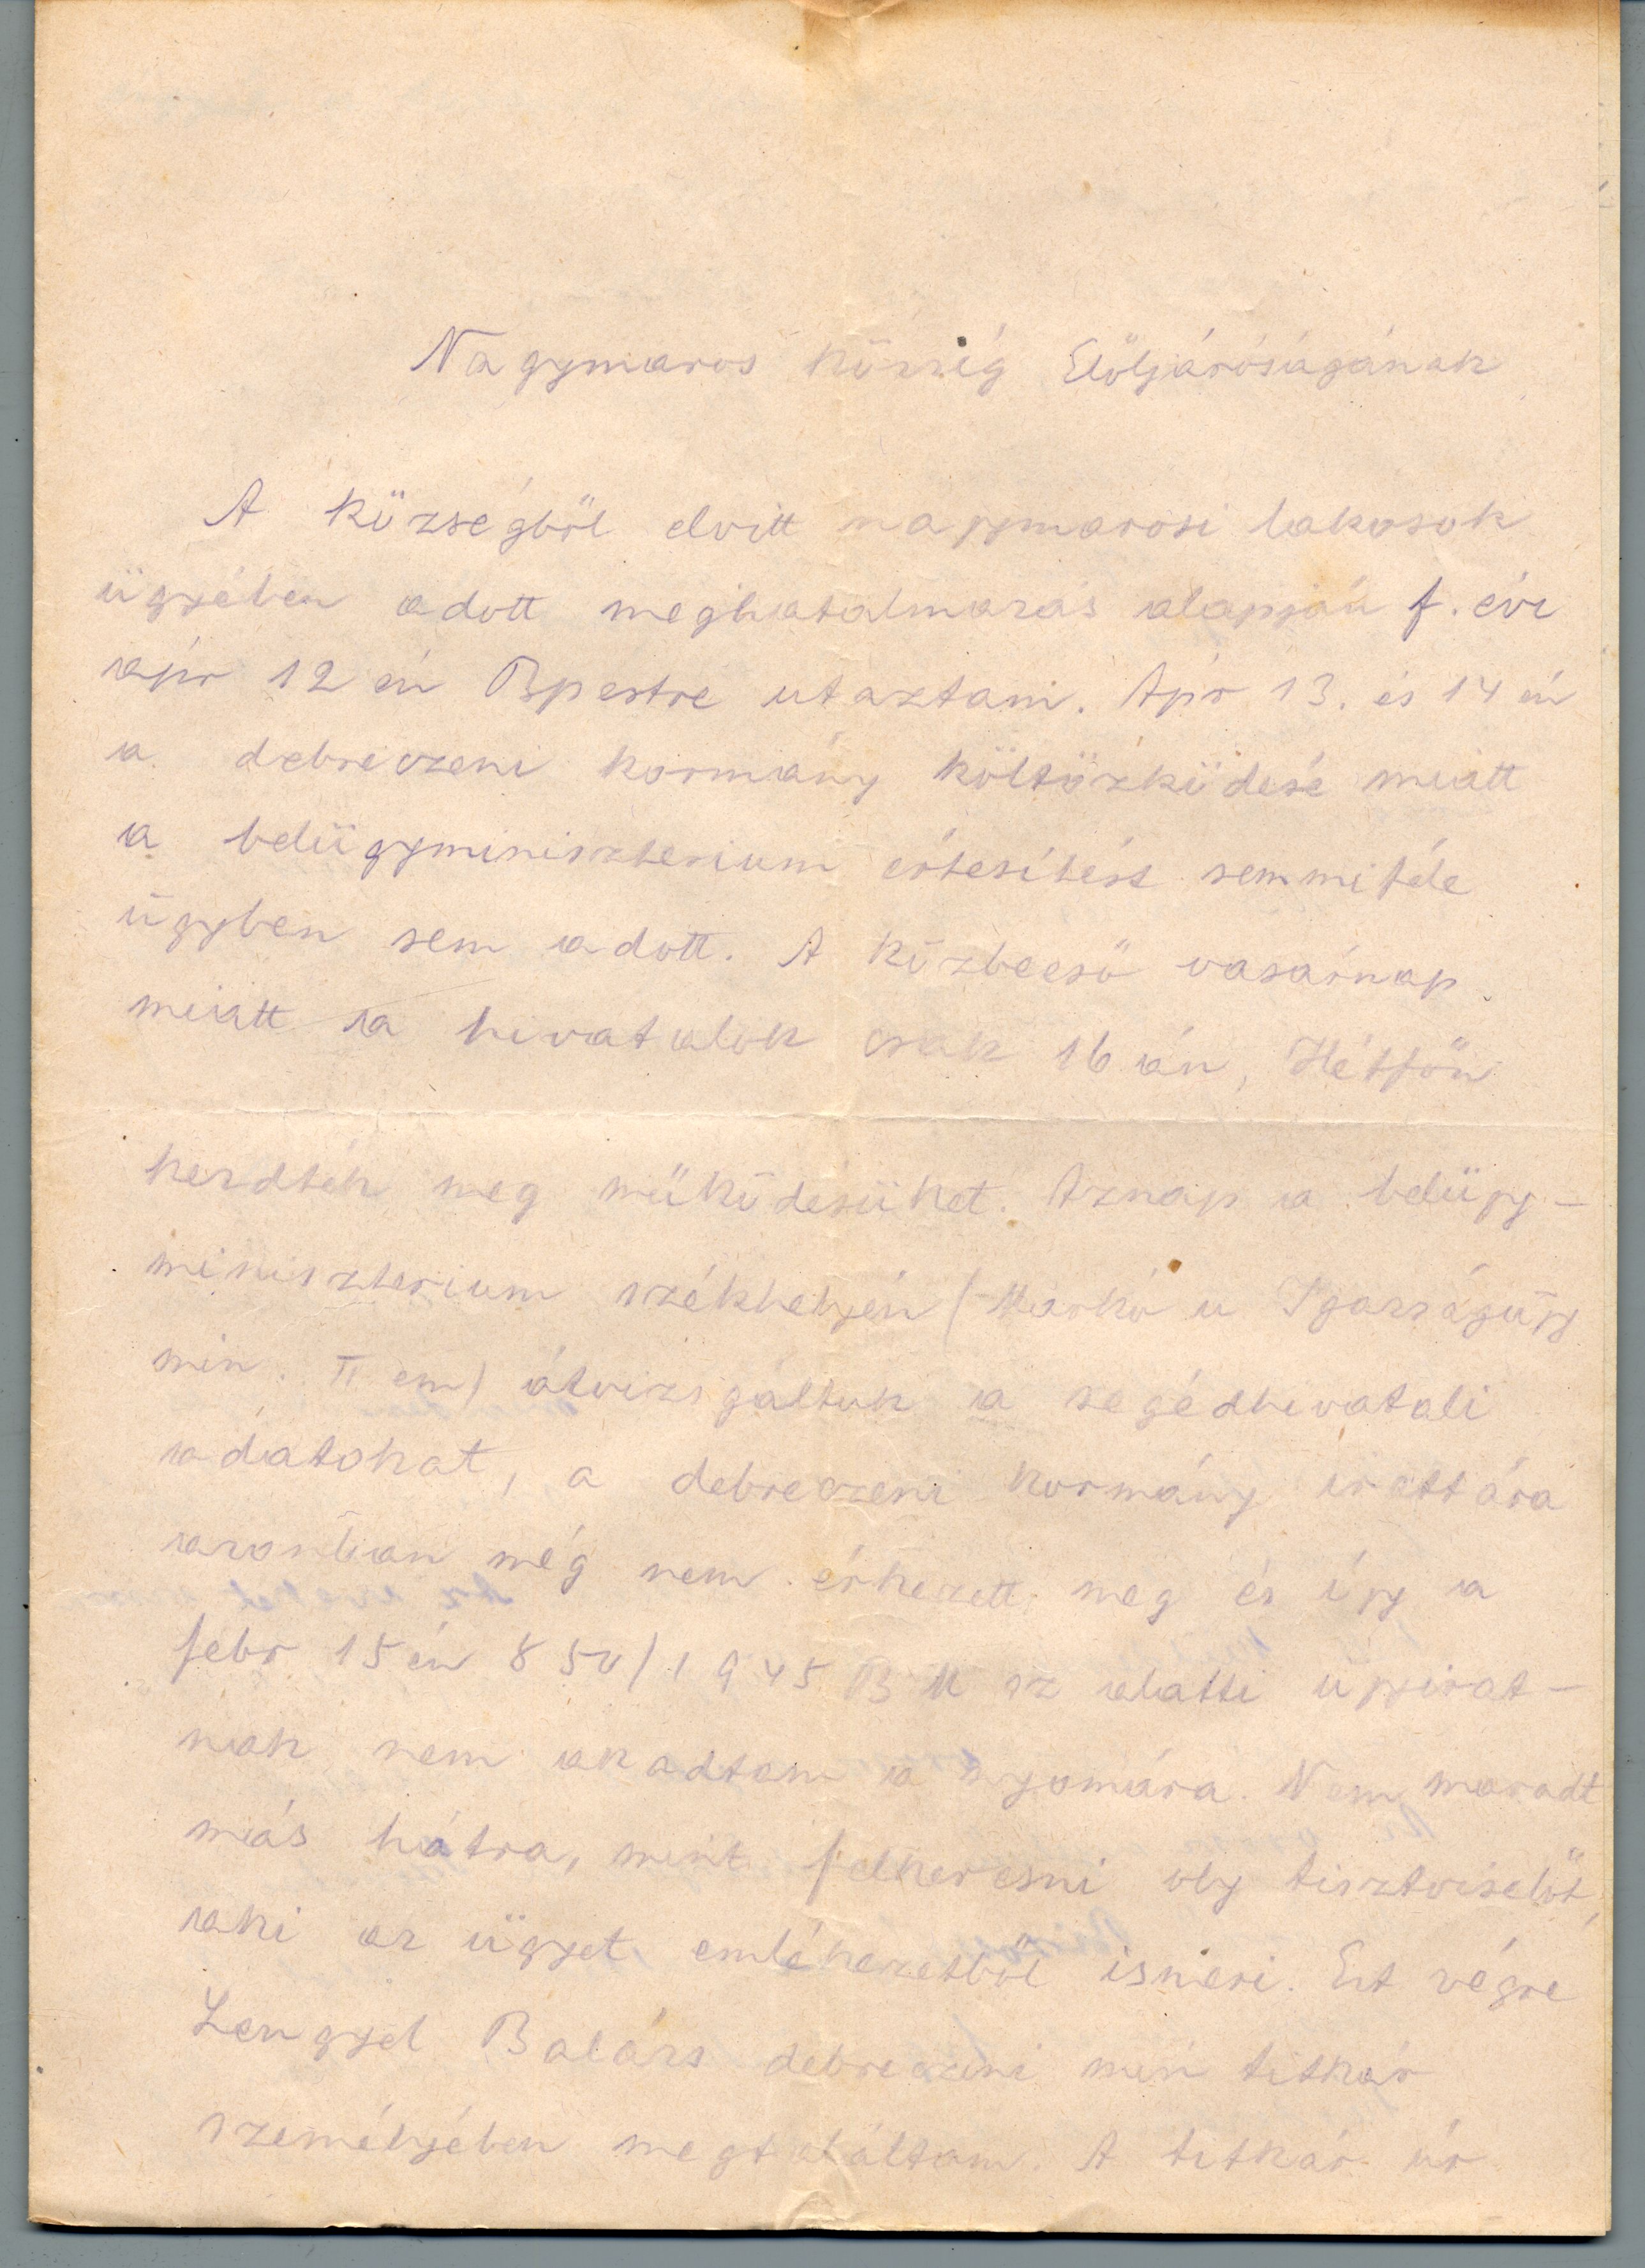 Nagymaros község Elöljáróságának
A községből elvitt nagymarosi lakosok
ügyében adott meghatalmazás alapján f. évi
apr 12 én Bpestre utaztam. Apr 13. és 14 én
a debreczeni kormány költözködése miatt
a belügyminiszterium értesítést semmiféle
ügyben sem adott. A közbeeső vasárnap
miatt a hivatalok csak 16 án, Hétfőn
kezdték meg működésüket. Aznap a belügy-
miniszterium székhelyén (Markó u Igazságügy
min. II em) átvizsgáltuk a segédhivatali
adatokat, a debreczeni kormány irattára
azonban még nem érkezett meg és így a
febr 15 én 850/1945 BM sz alatti ügyirat-
nak nem akadtam a nyomára. Nem maradt
más hátra, mint felkeresni oly tisztviselőt,
aki az ügyet emlékezetből ismeri. Ezt végre
Lengyel Balázs debreczeni min titkár
személyében megtaláltam. A titkár úr